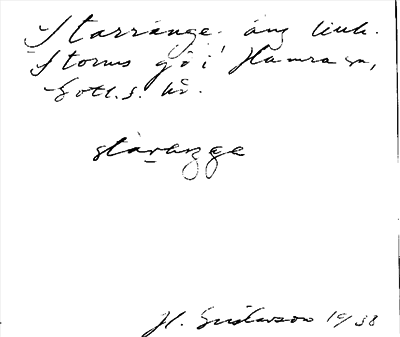 Starränge. äng tinh.
Storms gd i Hamra sn,
Gotl.s. hr.
starezge
H. Gustavson 19/38